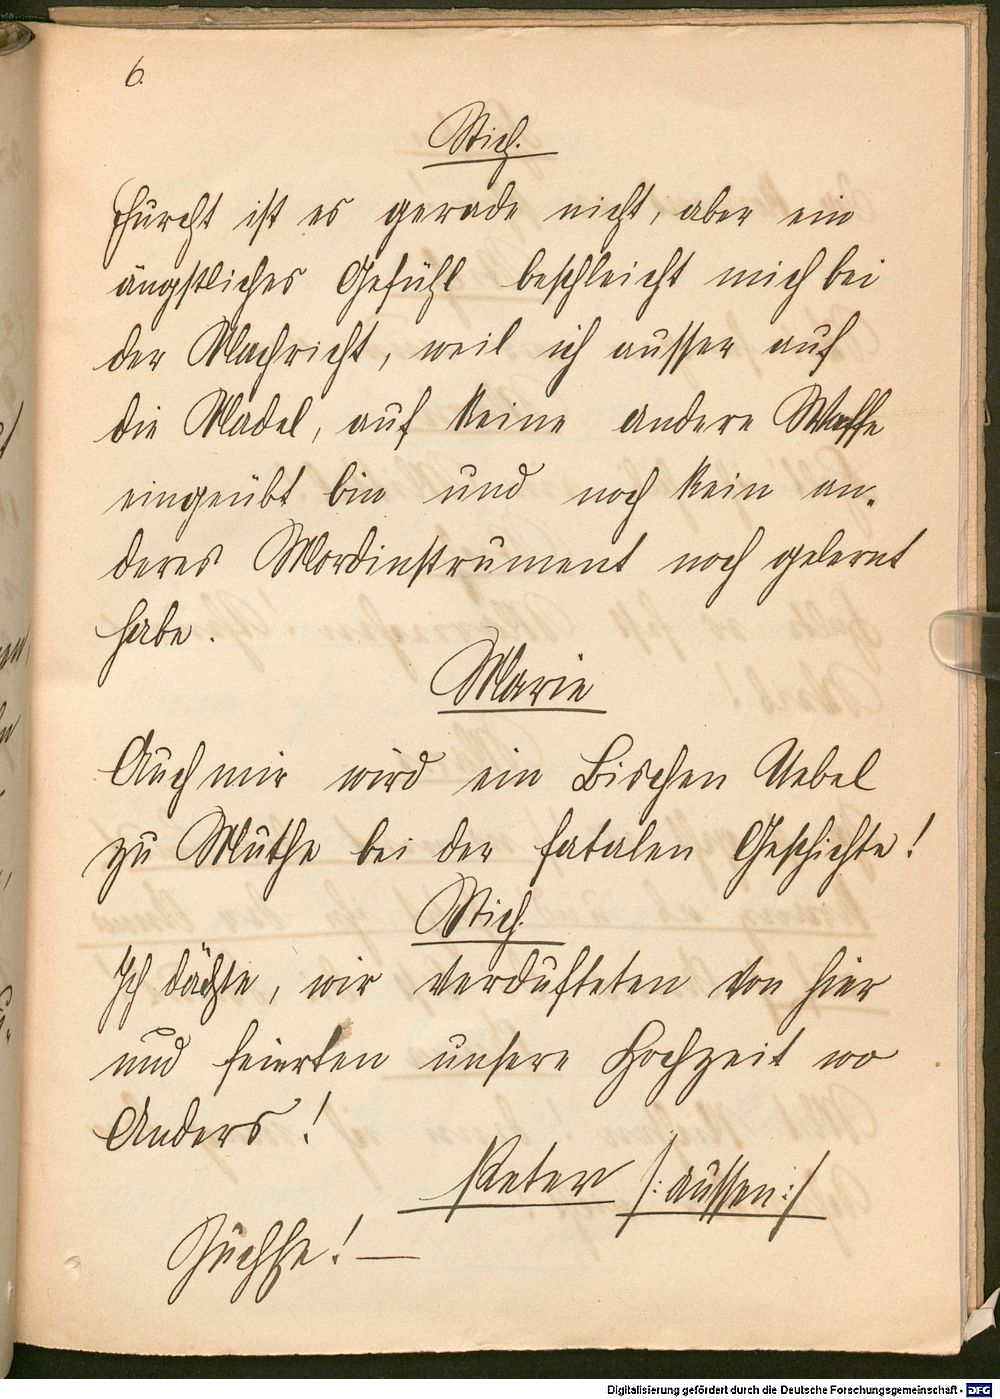 6.
Stich.
Furcht ist es gerade nicht, aber ein
ängstliches Gefühl beschleicht mich bei
der Nachricht, weil ich ausser auf
die Nadel, auf keine andere Waffe
eingeübt bin und noch kein an-
deres Mordinstrument noch gelernt
habe.
Marie
Auch mir wird ein Bischen Uebel
zu Muthe bei der fatalen Geschichte!
Stich.
Ich dächte, wir verdufteten von hier
und feierten unsere Hochzeit wo
Anders!
Peter /: aussen :/
Juchhe! —
Digitalisierung gefördert durch die Deutsche Forschungsgemeinschaft - DFG